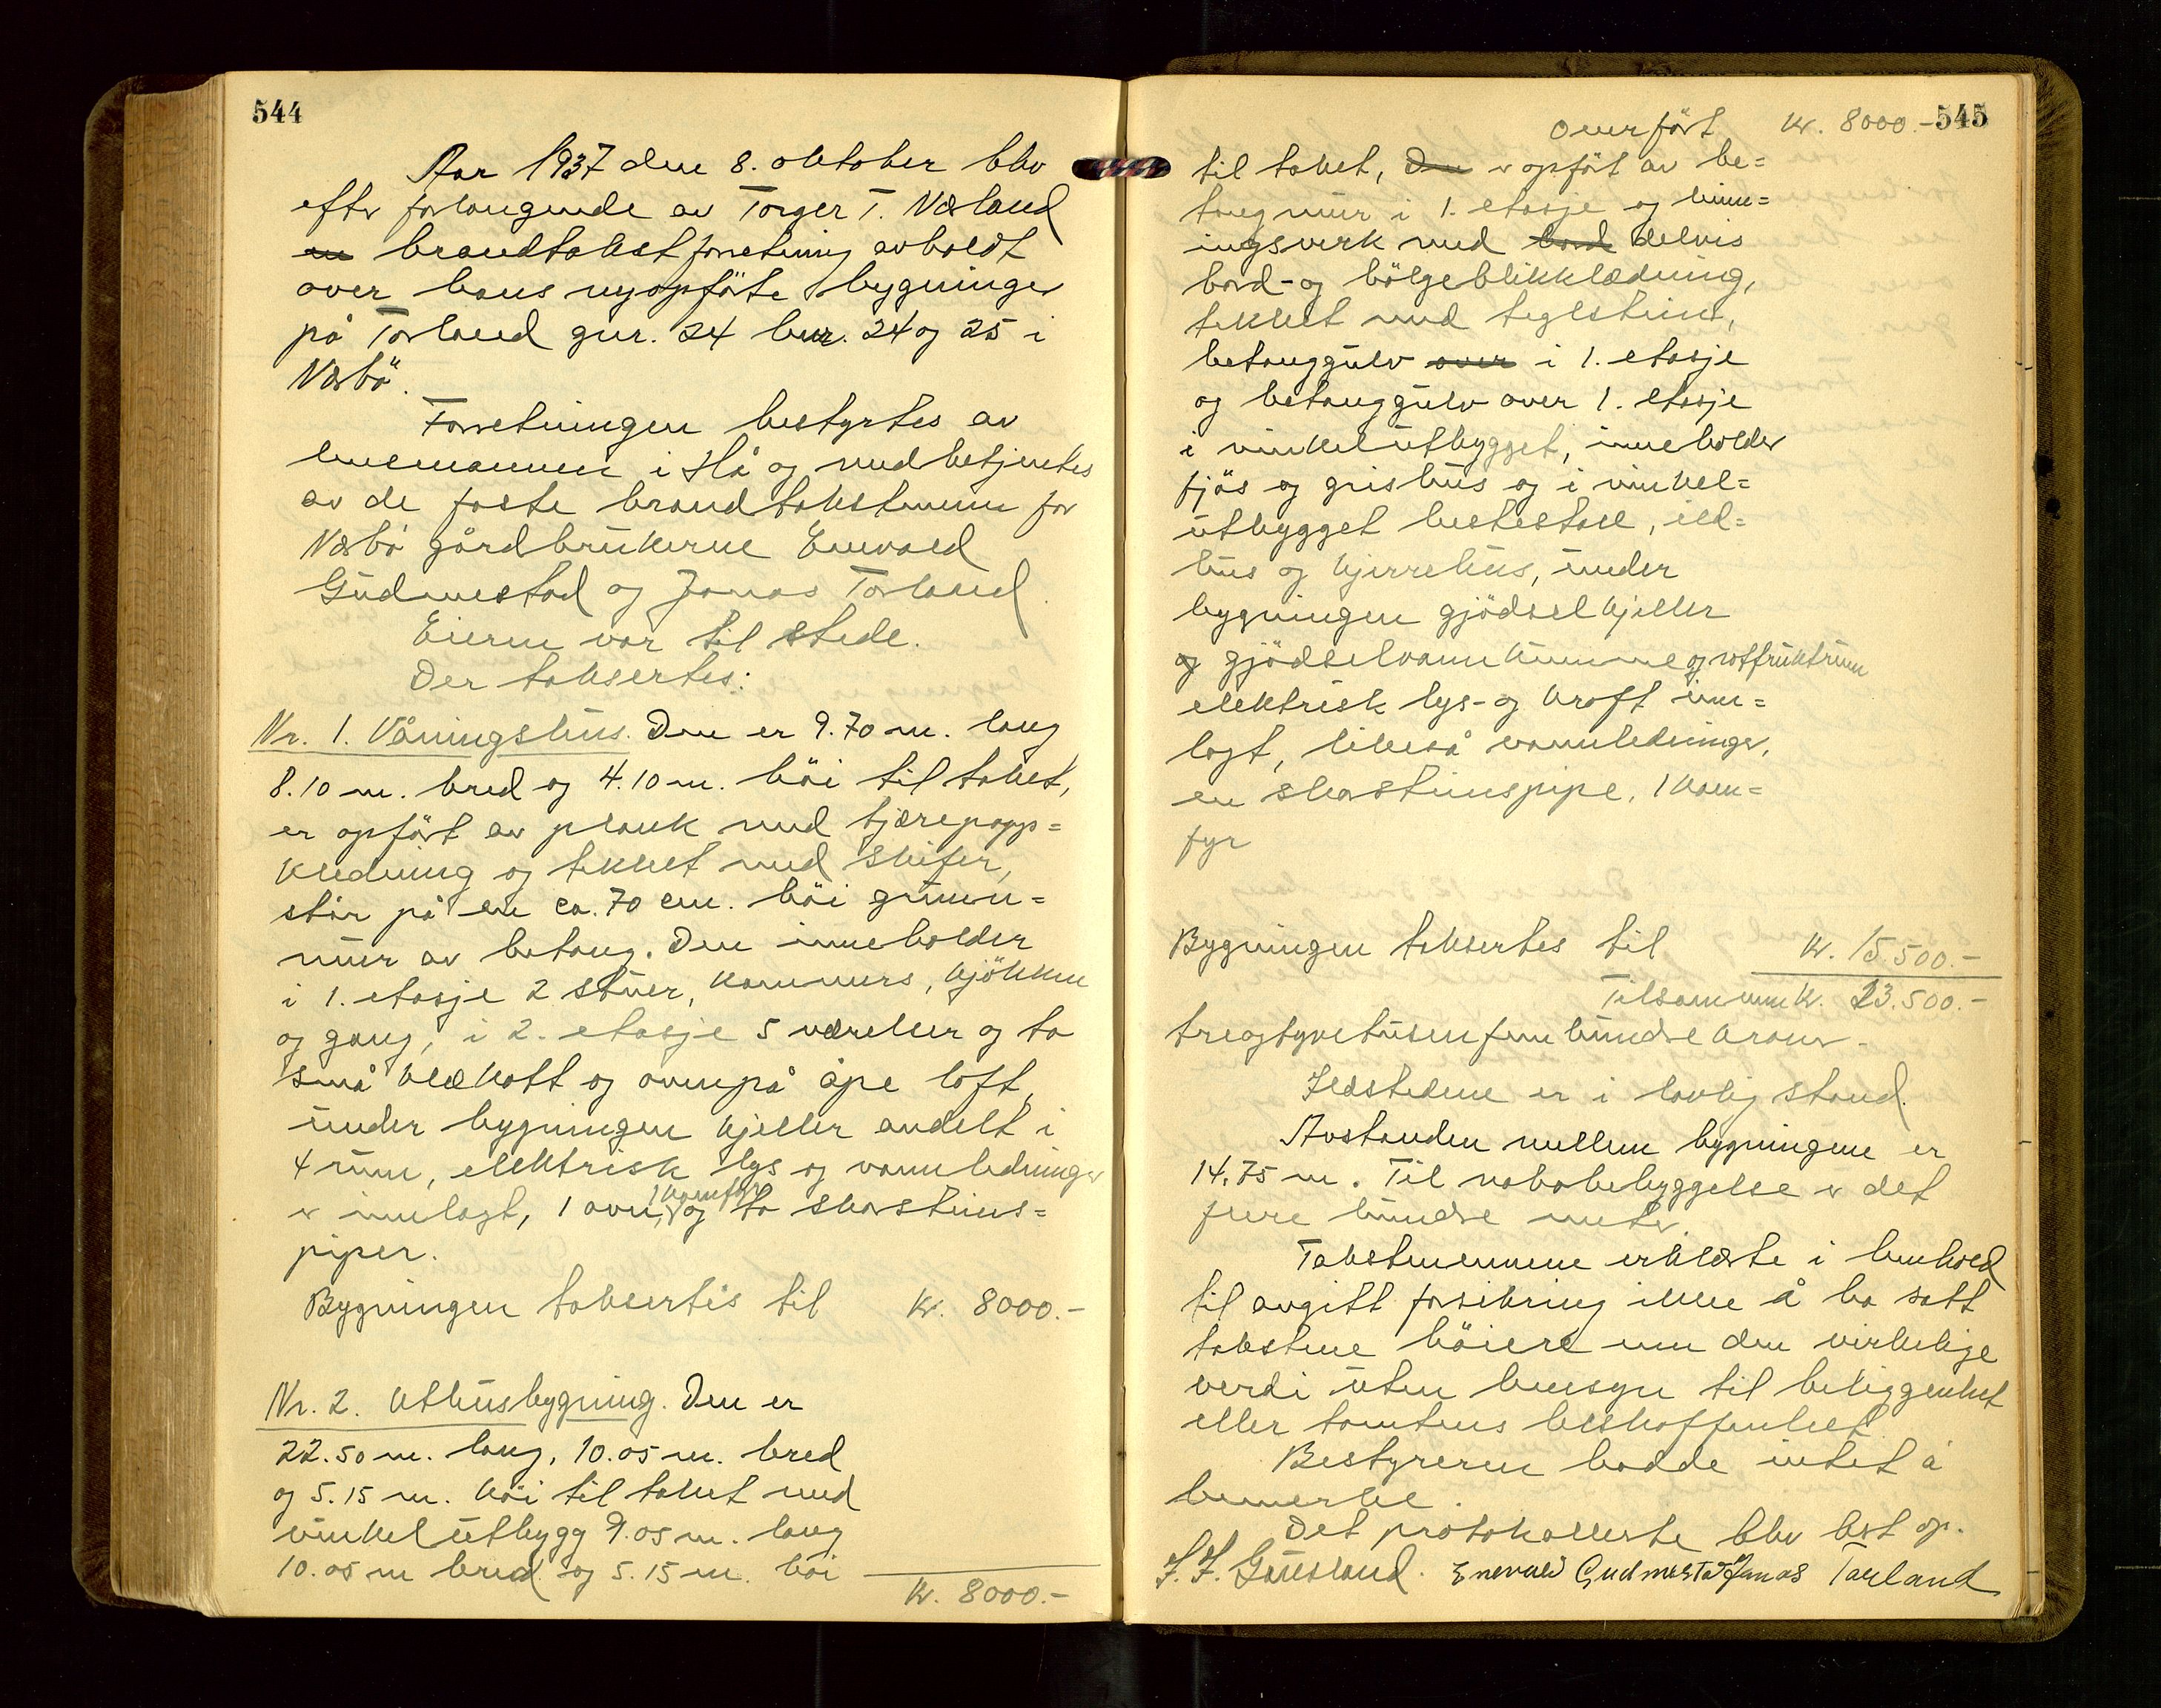 544
Aar 1937 den 8. oktober blev
efter forlangende av Torger T. Næland
en brandtakstforretning avholdt
over hans nyopförte bygninger
på Torland gnr. 24 bnr. 24 og 25 i
Nærbö.
Forretningen bestyrtes av
lensmannen i Hå og medbetjentes
av de faste brandtakstmenn for
Nærbö gårdbrukerne Enevald
Gudmestad og Jonas Torland.
Eieren var til stede.
Der taksertes:
Nr. 1. Våningshus. Den er 9.70 m. lang
8.10 m. bred og 4.10 m. höi til taket,
er opfört av plank med tjærepapp=
kledning og tekket med skifer,
står på en ca. 70 cm. höi grunn=
mur av betong. Den inneholder
i 1. etasje 2 stuer, kammers, kjökken
og gang, i 2. etasje 5 værelser og to
små klækott og ovenpå åpe loft,
under bygningen kjeller avdelt i
4 rum, elektrisk lys og vannledninger
er innlagt, 1 ovn, 1 komfyr og to skorstens=
piper.
Bygningen taksertes til kr. 8000.-
Nr. 2. Uthusbygning. Den er
22.50 m. lang, 10.05 m. bred
og 5.15 m. höi til taket med
vinkelutbygg 9.05 m. lang
10.05 m bred og 5.15 m. höi
kr. 8000.-
545
Overfört kr. 8000.-
til taket, Den er opfört av be=
tongmur i 1. etasje og binn=
ingsverk med bord delvis
bord- og bölgeblikklædning,
tekket med teglsteine,
betonggulv over i 1. etasje
og betonggulv over 1. etasje
i vinkelutbygget, inneholder
fjös og grishus og i vinkel=
utbygget hestestall, ild=
hus og kjerrehus, under
bygningen gjödselkjeller
og gjödselvannkumme og rotfruktrum
elektrisk lys- og kraft inn=
lagt, likeså vannledninger,
en skorstenspipe, 1 kom=
fyr
Bygningen taksertes til kr. 15 500.-
Tilsammen kr. 23.500.-
treogtyvetusenfemhundre kroner.
Ildstedene er i lovlig stand.
Avstanden mellem bygningene er
14.75 m. Til nabobebyggelse er det
flere hundre meter.
Takstmennene erklærte i henhold
til avgitt forsikring ikke å ha satt
takstene höiere enn den virkelige
verdi uten hensyn til beliggenhet
eller tomtens beskaffenhet.
Bestyreren hadde intet å
bemerke.
Det protokollerte blev lest op.
Enevald Gudmestad Jonas Torland